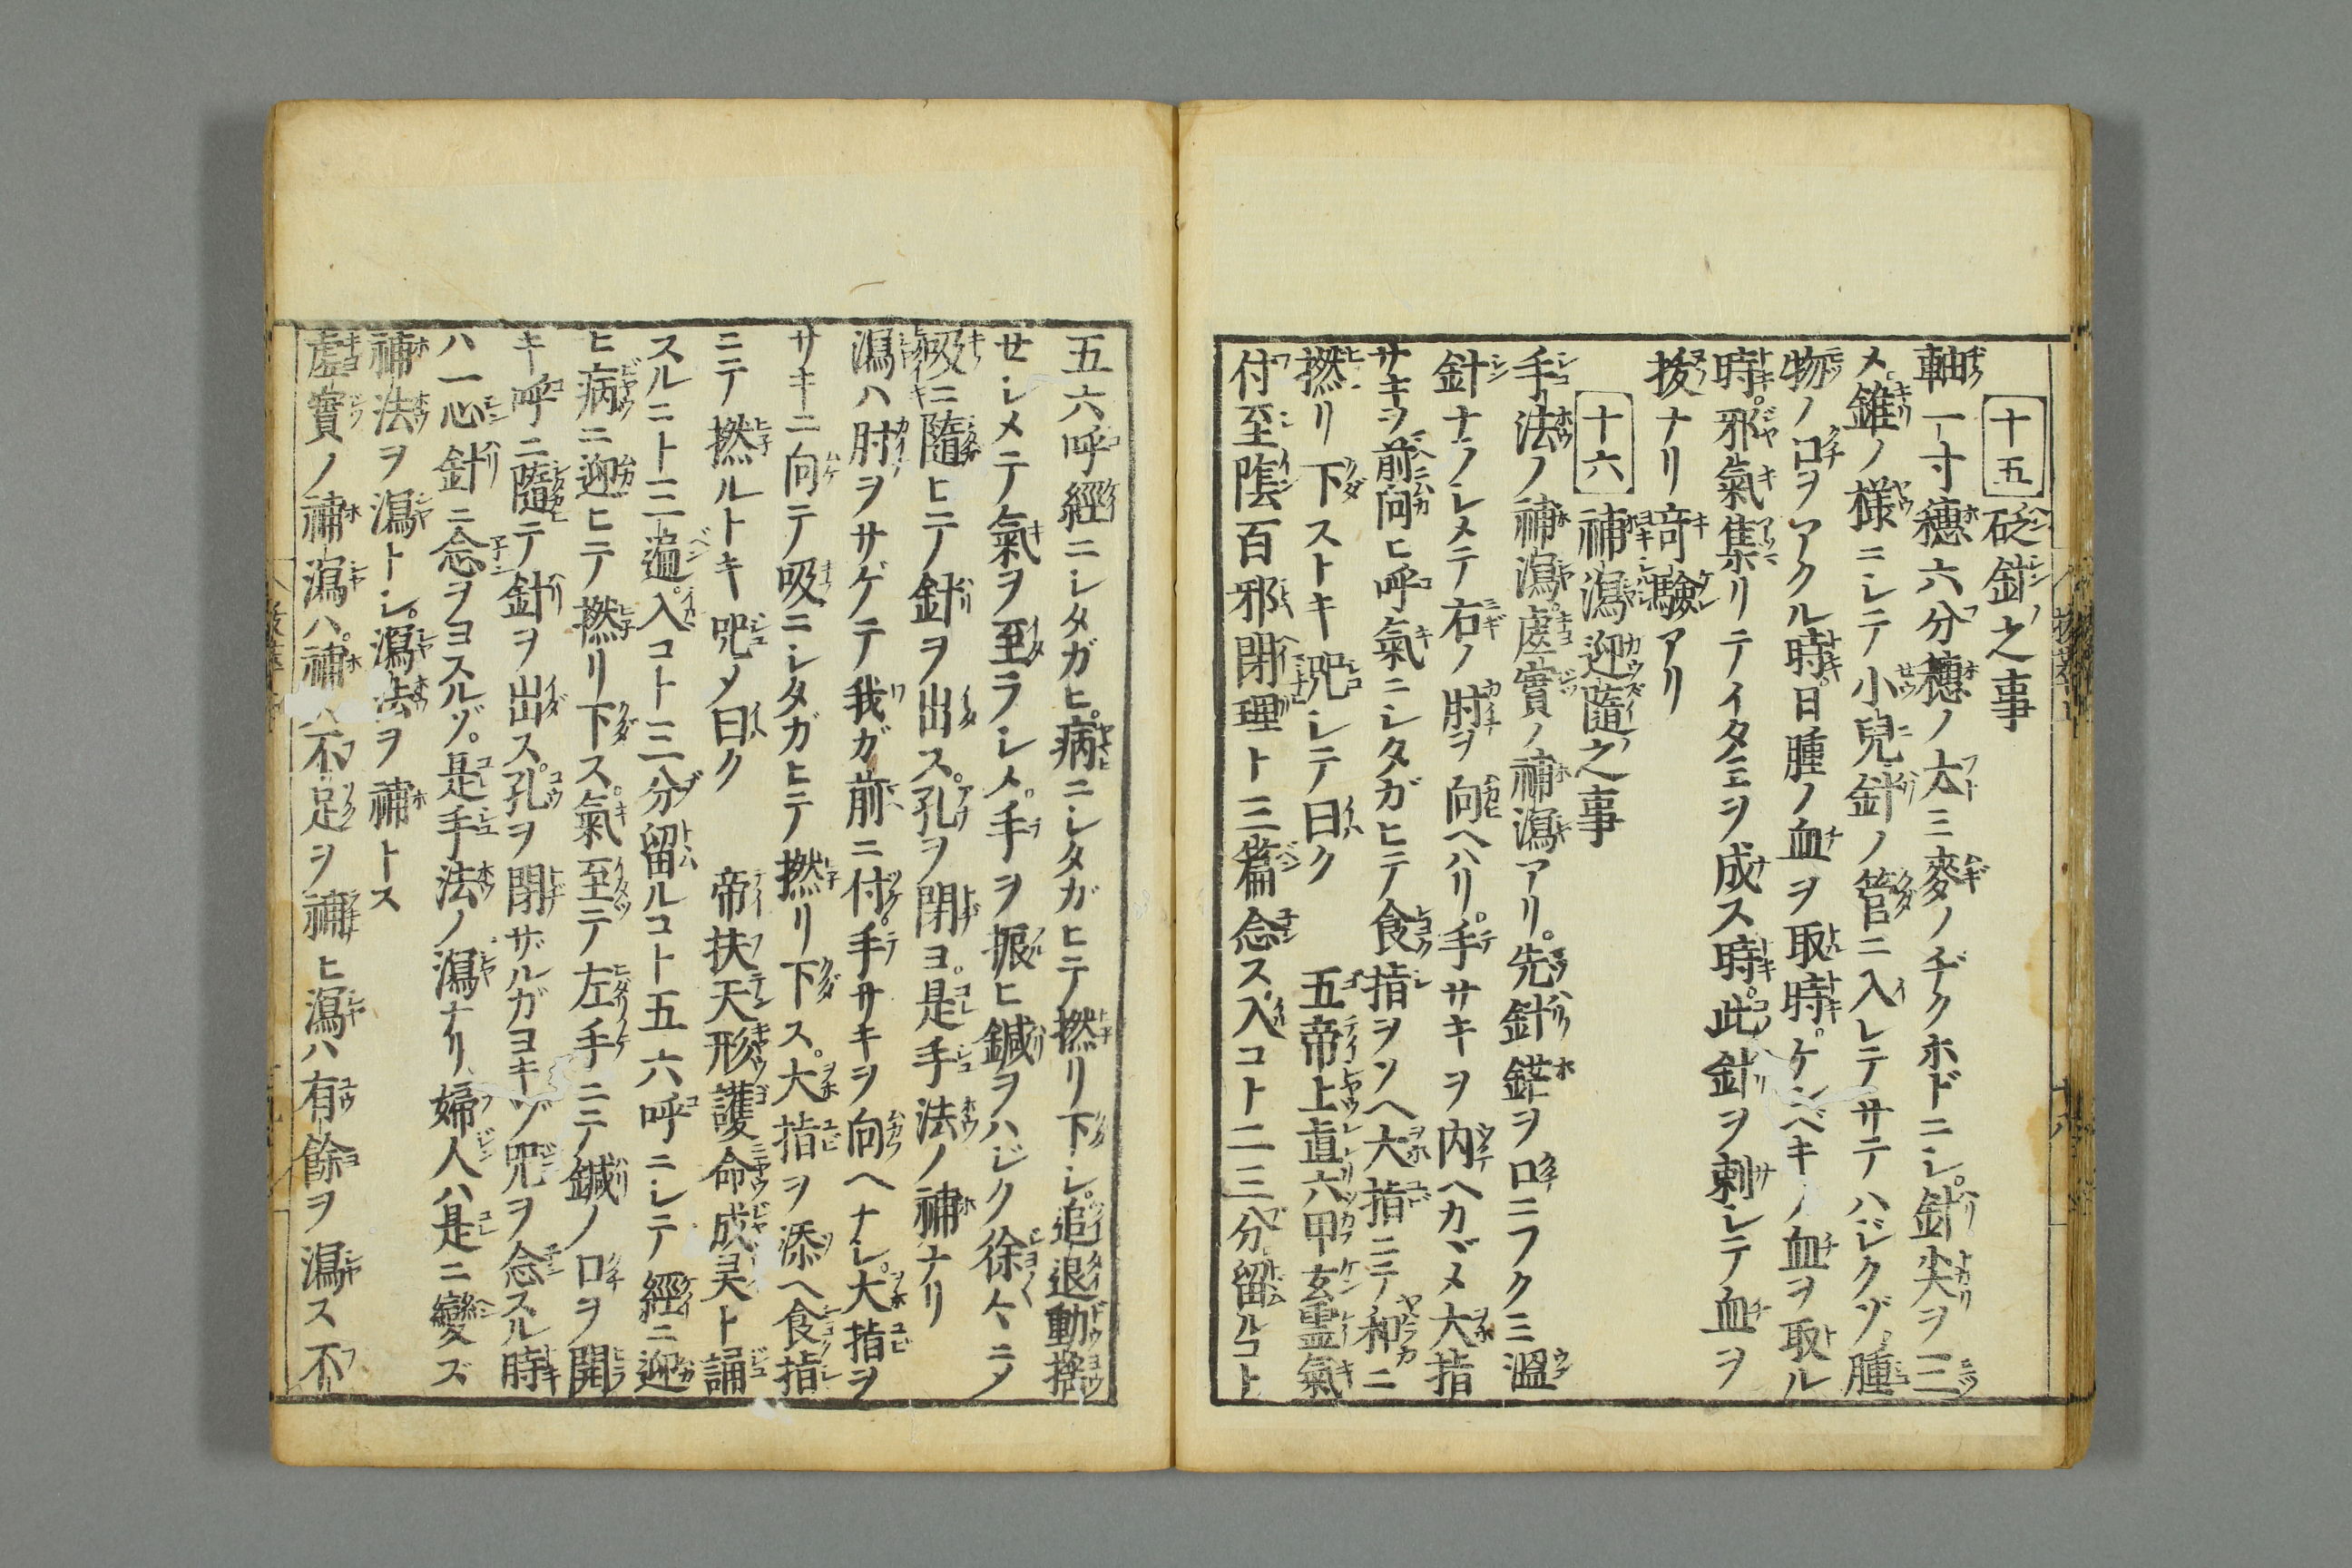 十五 砭針之事
軸一寸穗六分穗ノ太三麥ノヂクホドニシ。針尖ヲ三
メ。錐ノ樣ニシテ小兒針ノ管ニ入レテサテハジクゾ腫
物ノ口ヲアクル時。日腫ノ血ヲ取時。ケンベキノ血ヲ取ル
時。邪氣集リテイタミヲ成ス時。此針ヲ刺シテ血ヲ
拔ナリ竒驗アリ
十六 補瀉迎隨之事
手法ノ補瀉。虚實ノ補瀉アリ。先針鋒ヲ口ニフクミ溫
針ナラシメテ右ノ肘ヲ向ヘハリ。手サキヲ内ヘカヾメ大指
サキヲ前向ヒ呼氣ニシタガヒテ食指ヲソヘ大指ニテ和ニ
撚リ下ストキ咒シテ曰ク 五帝上直六甲玄靈氣
付至陰百邪閉理ト三篇念ス入コト二三分留ルコト
五六呼經ニシタガヒ。病ニシタガヒテ撚リ下シ。追退動搖
セシメテ氣ヲ至ラシメ。手ヲ振ヒ鍼ヲハジク徐々ニメ
吸ニ隨ヒテ針ヲ出ス。孔ヲ閉ヨ。是手法ノ補ナリ
瀉ハ肘ヲサゲテ我ガ前ニ付。手サキヲ向ヘナシ。大指ヲ
サキニ向テ吸ニシタガヒテ撚リ下ス。大指ヲ添ヘ食指
ニテ撚ルトキ咒メ曰ク 帝扶天形護命成吴ト誦
スルニト三遍。入コト三分留ルコト五六呼ニシテ經ニ迎
ヒ病ニ迎ヒテ撚リ下ス。氣至テ左手ニテ鍼ノ口ヲ開
キ呼ニ隨テ針ヲ出ス。孔ヲ閉ザルガヨキゾ咒ヲ念スル時
ハ一心針ニ念ヲヨスルゾ。是手法ノ瀉ナリ婦人ハ是ニ變ズ
補法ヲ瀉トシ。瀉法ヲ補トス
虚實ノ補瀉ハ。補ハ不足ヲ補ヒ瀉ハ有餘ヲ瀉ス不